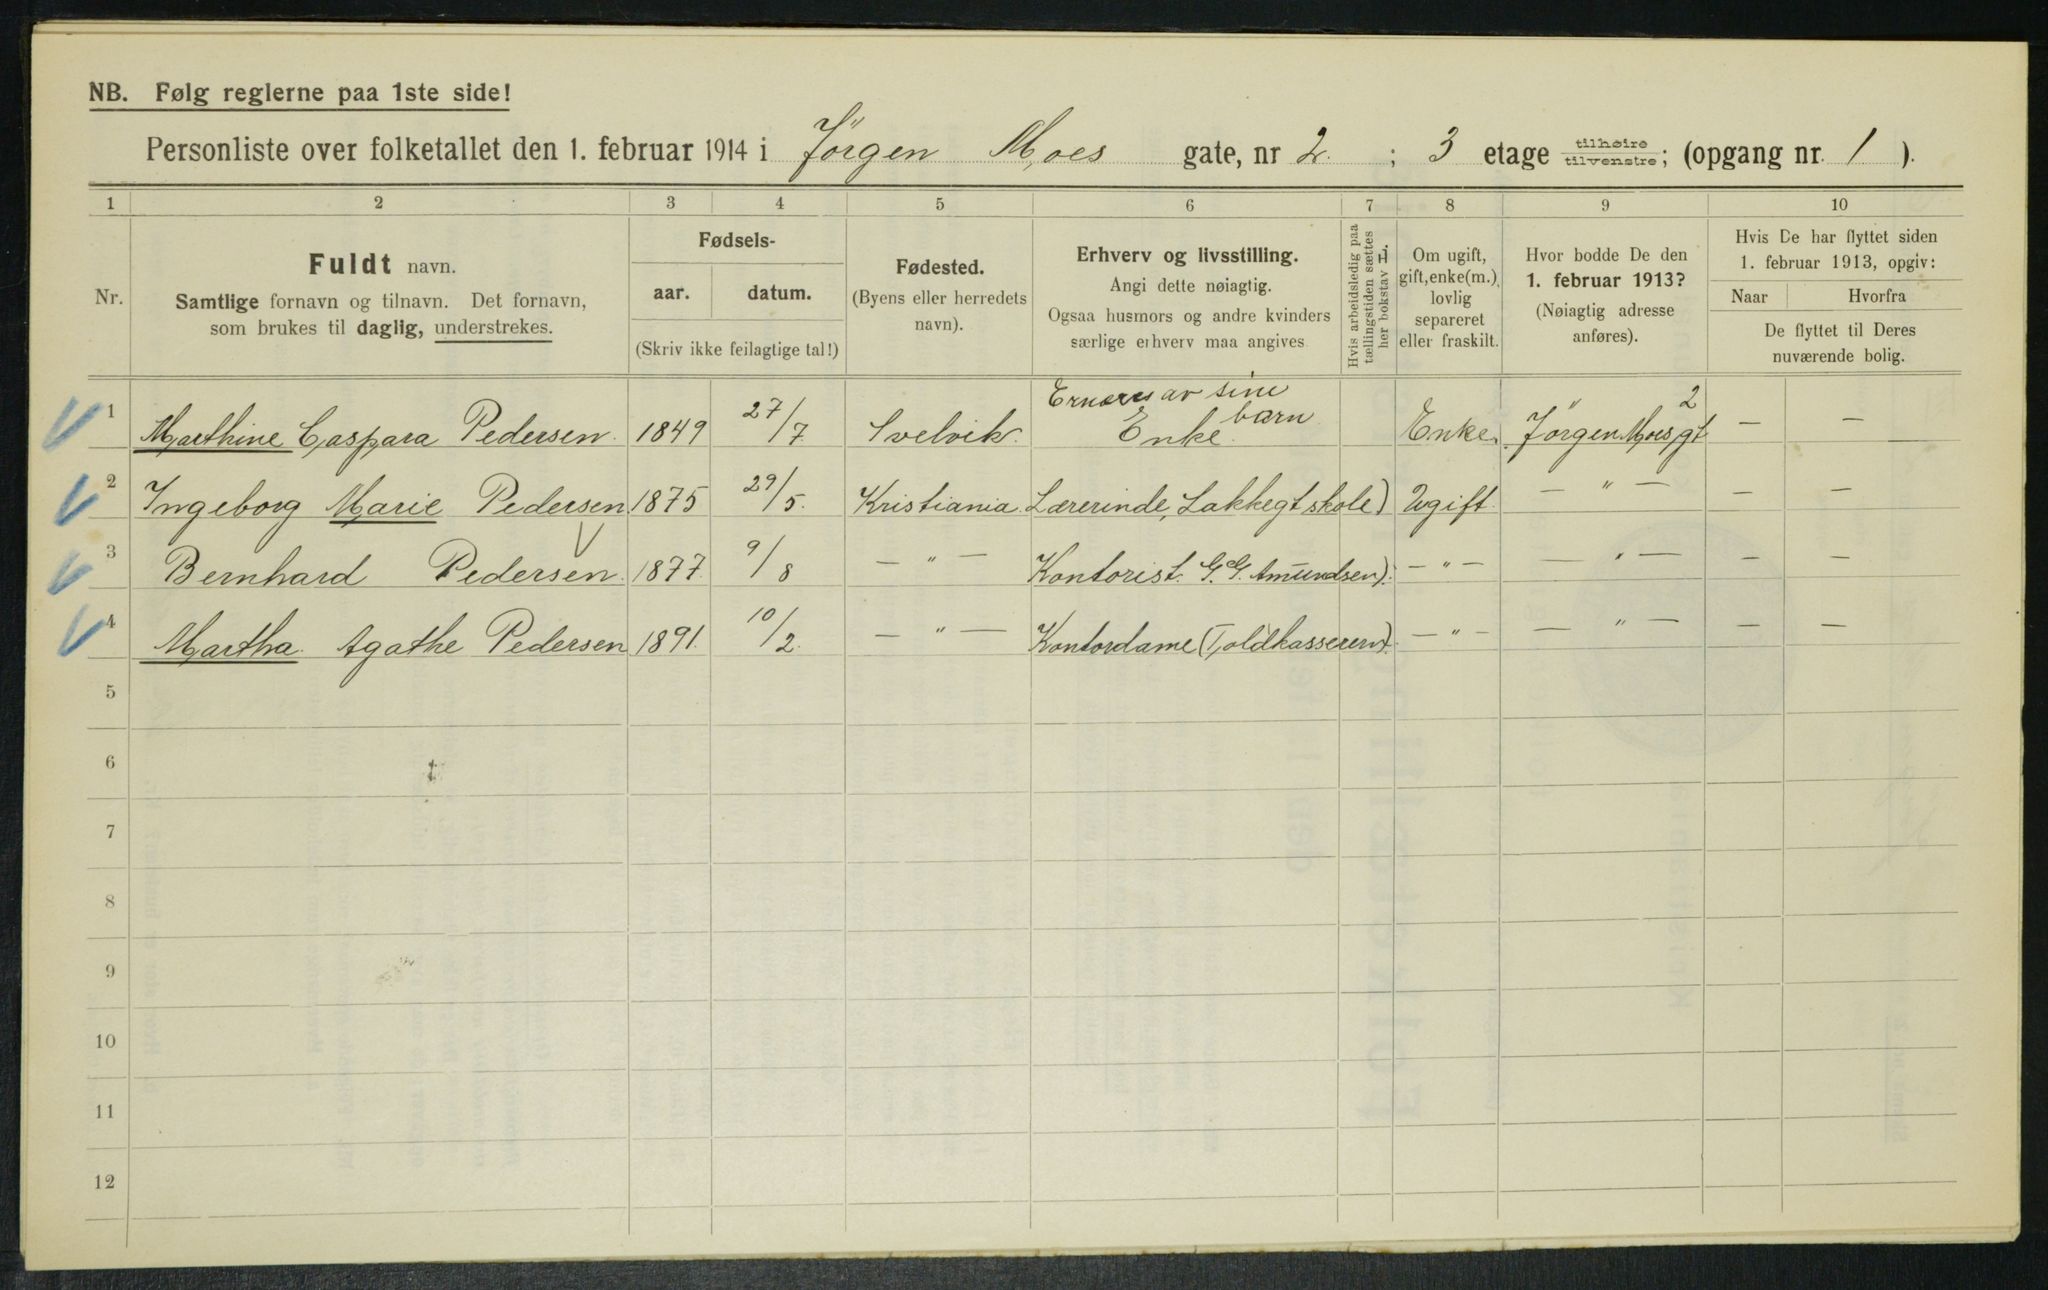 NB. Følg reglerne paa 1ste side!
Personliste over folketallet den 1. februar 1914 i Jörgen Moes gate, nr 2. ; 3 etage tilhøire tilvenstre; (opgang nr. 1 ).
1 2 3 4 5 6 7 8 9 10
Nr.
Fuldt navn.
Samtlige fornavn og tilnavn. Det fornavn,
som brukes til daglig, understrekes.
Fødsels-
aar. datum.
(Skriv ikke feilagtige tal!)
Fødested.
(Byens eller herredets
navn).
Erhverv og livsstilling.
Angi dette nøiagtig.
Ogsaa husmors og andre kvinders
særlige erhverv maa angives
Hvis arbeidsledig paa
tællingstiden sættes
her bokstav L.
Om ugift,
gift, enke(m.),
lovlig
separeret
eller fraskilt.
Hvor bodde De den
1. februar 1913?
(Nøiagtig adresse
anføres).
Hvis De har flyttet siden
1. februar 1913, opgiv:
Naar Hvorfra
De flyttet til Deres
nuværende bolig.
Ernæres av sine barn
1 Marthine Caspara Pedersen. 1849 27/7 Svelvik. Enke. Enke. Jörgen Moes gt 2 — —
2 Ingeborg Marie Pedersen 1875 29/5. Kristiania. Lærerinde, Lakkegt skole) Ugift. — " — — —
3 Bernhard Pedersen. 1877. 9/8 — " — Kontorist. G. G. Amundsen). — " — — " — — —
4 Martha. Agathe Pedersen 1891. 10/2. — " — Kontordame (Toldkasseren). — " — — " — — —
5
6
7
8
9
10
11
12